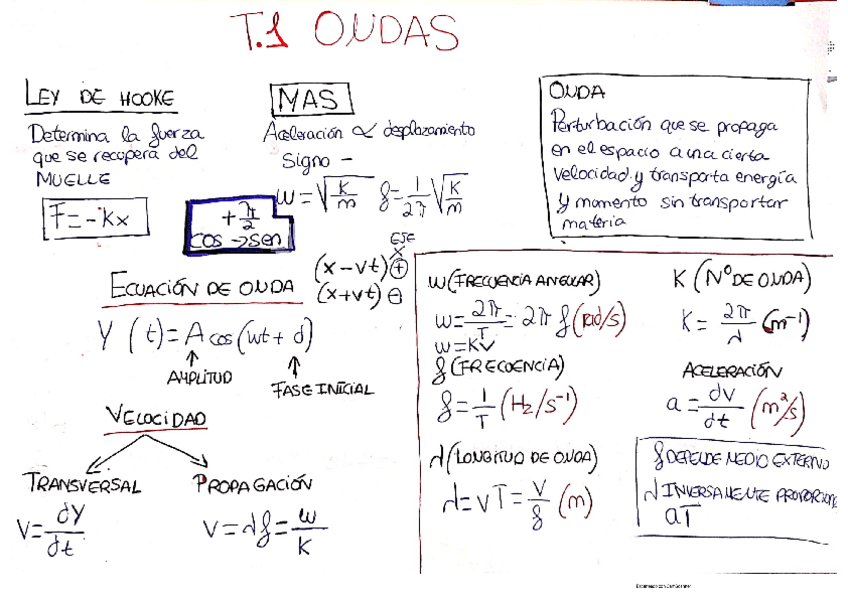 T.1 ONDAS
LEY DE HOOKE
Determina la fuerza
que se recupera del
MUELLE
F=-kx
MAS
Aceleración ∝ desplazamiento
Signo -
w=√(K/m) f=1/2π √(K/m)
+π/2
cos→sen
ONDA
Perturbación que se propaga
en el espacio a una cierta
velocidad y transporta energía
y momento sin transportar
materia
ECUACIÓN DE ONDA
EJE
X
(x-vt)⊕
(x+vt)⊖
Y(t)=A cos(wt+d)
AMPLITUD
FASE INICIAL
VELOCIDAD
TRANSVERSAL
V=dY/dt
PROPAGACIÓN
V=λf=w/K
W(FRECUENCIA ANGULAR)
w=2π/T=2π f(Rad/s)
w=KV
f(FRECUENCIA)
f=1/T (Hz/s⁻¹)
λ(LONGITUD DE ONDA)
λ=vT=v/f (m)
K(Nº DE ONDA)
K=2π/λ (m⁻¹)
ACELERACIÓN
a=dv/dt (m²/s)
f DEPENDE MEDIO EXTERNO
λ INVERSAMENTE PROPORCION
aT
Escaneado con CamScanner